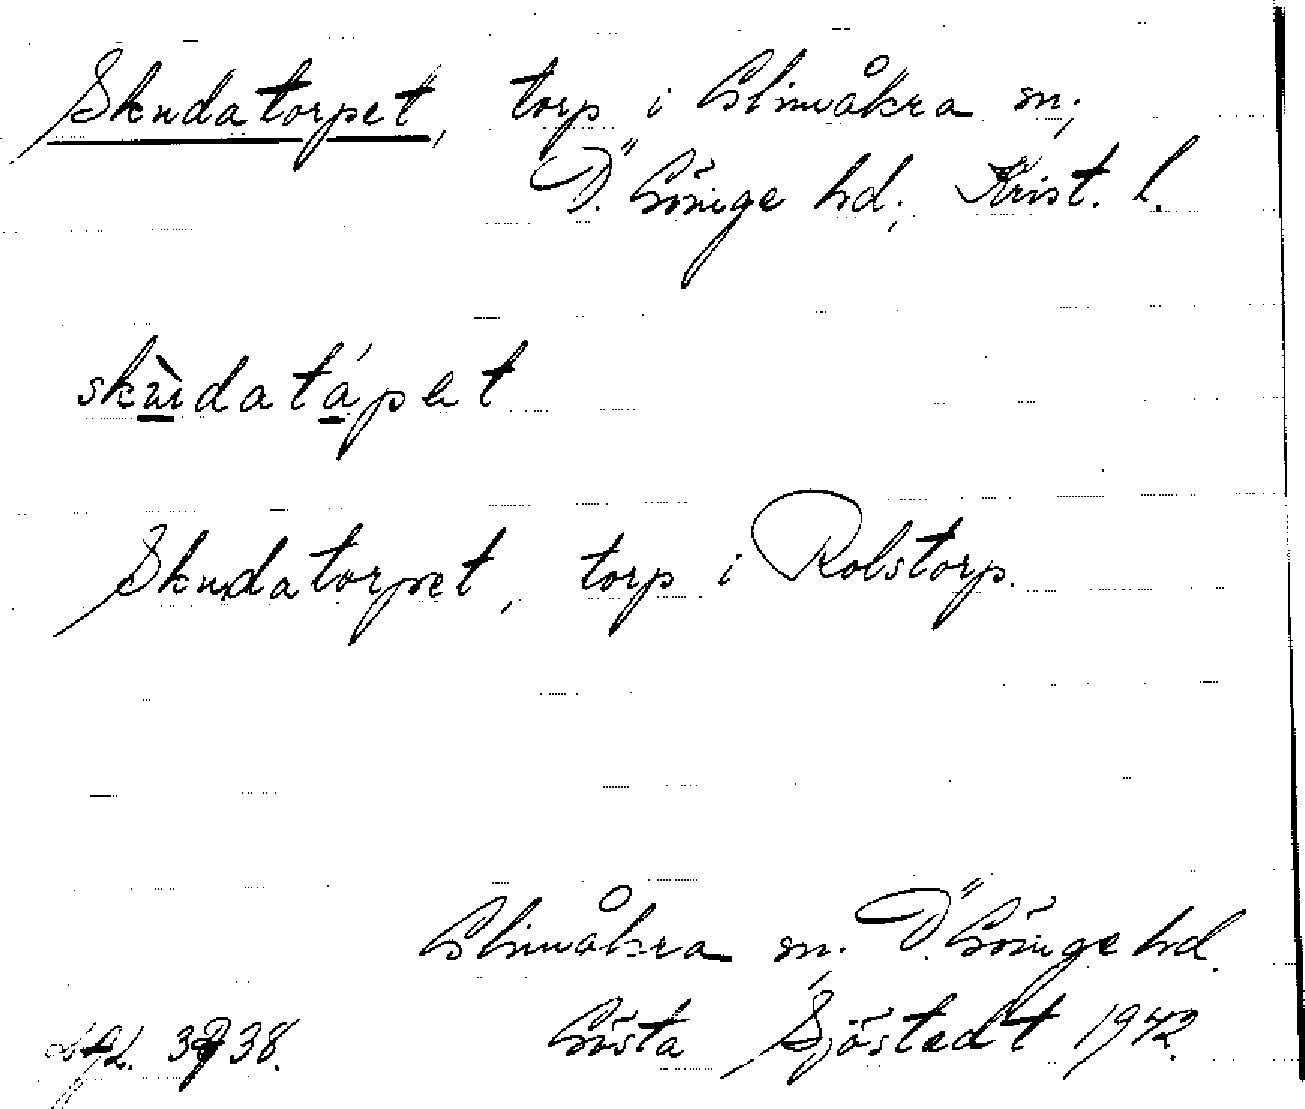 Skudatorpet, torp i Glimåkra sn,
Ö. Göinge hd, Krist. l.
skùdatápet
Skudatorpet, torp i Rolstorp.
Glimåkra sn, Ö. Göinge hd.
Gösta Sjöstedt 1942.
3938.